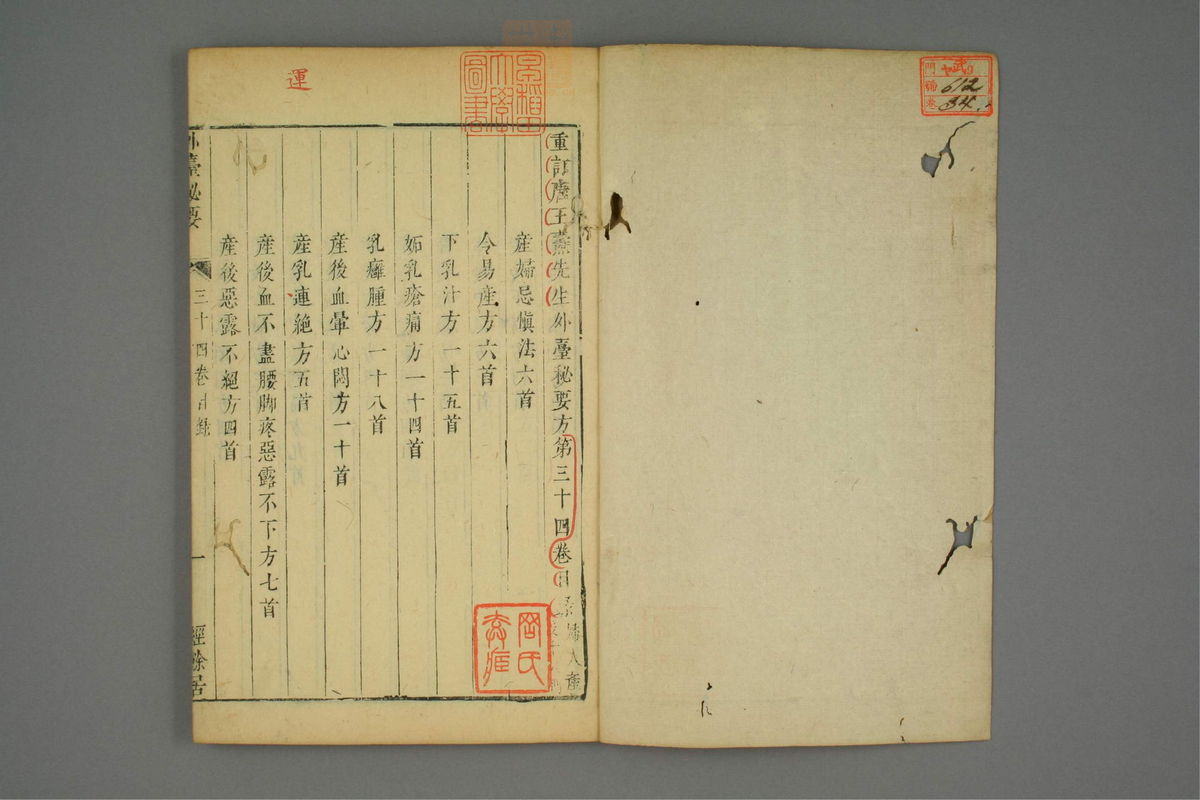 門 ヤ9
號 612
卷 34
運
重訂唐王燾先生外臺秘要方第三十四卷目
婦人產
產婦忌慎法六首
令易產方六首
下乳汁方一十五首
妬乳瘡痛方一十四首
乳癰腫方一十八首
產後血暈心悶方一十首
產乳連絕方五首
產後血不盡腰脚疼惡露不下方七首
產後惡露不絕方四首
外臺秘要
三十四卷目錄
一
經餘居